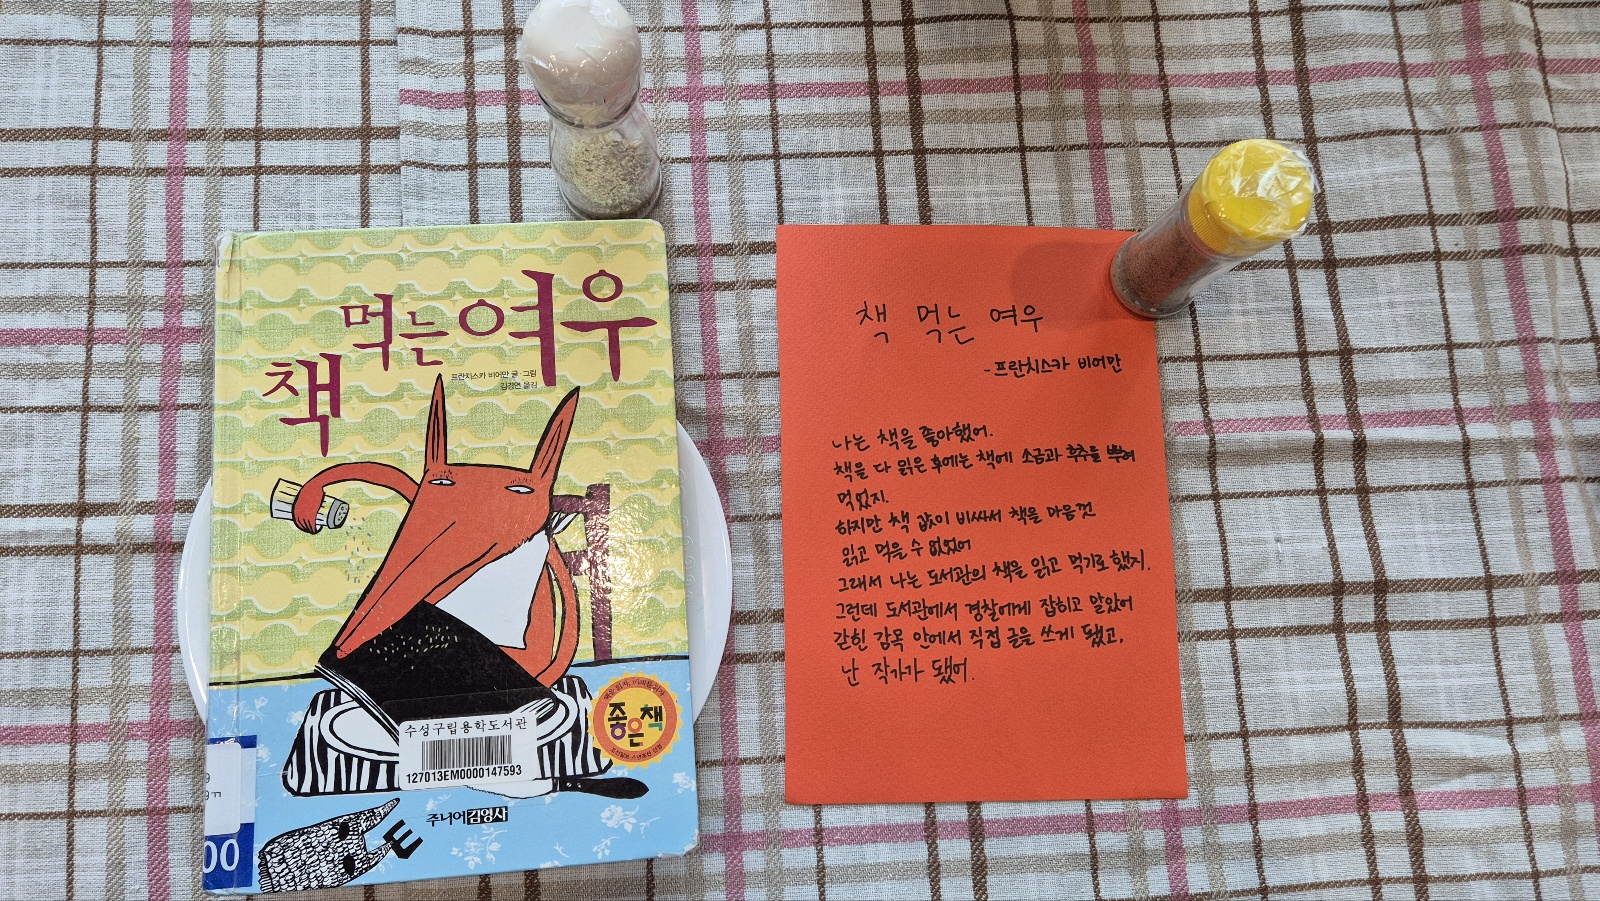 책 먹는 여우
프란치스카 비어만 글·그림
김경연 옮김
좋은책
수성구립용학도서관
127013EM0000147593
주니어김영사
00
책 먹는 여우
-프란치스카 비어만
나는 책을 좋아했어.
책을 다 읽은 후에는 책에 소금과 후추를 뿌려
먹었지.
하지만 책 값이 비싸서 책을 마음껏
읽고 먹을 수 없었어
그래서 나는 도서관의 책을 읽고 먹기로 했지.
그런데 도서관에서 경찰에게 잡히고 말았어
갇힌 감옥 안에서 직접 글을 쓰게 됐고,
난 작가가 됐어.